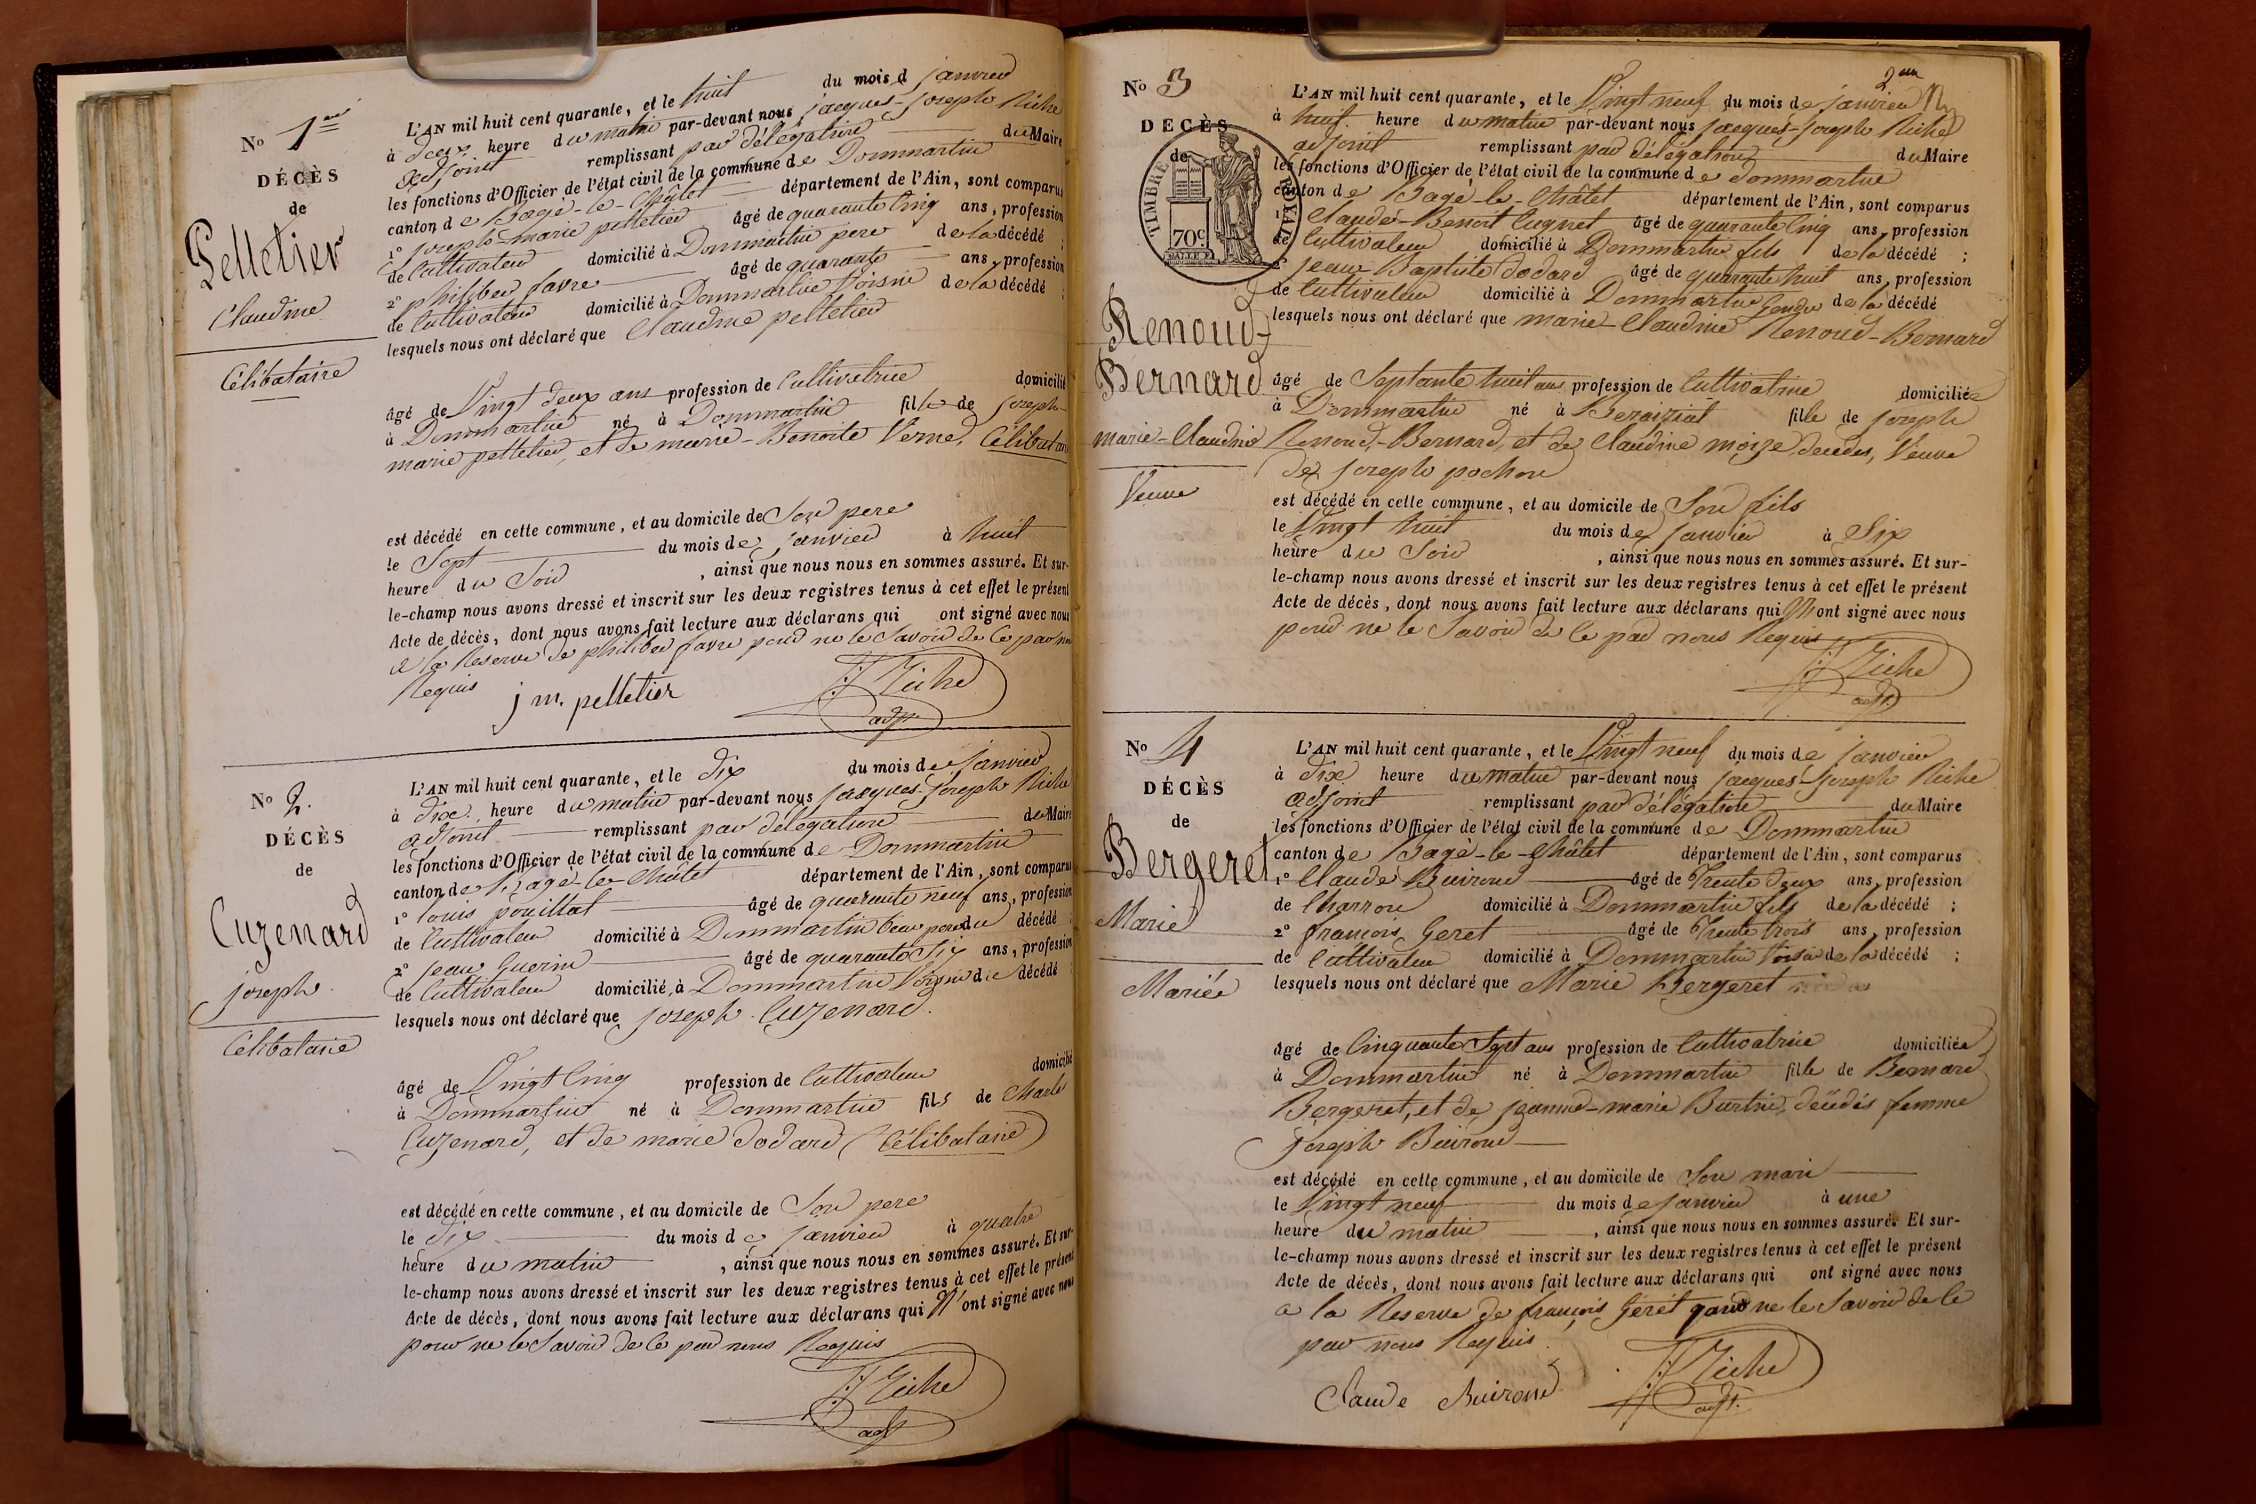 No 1er
DÉCÈS
de
Pelletier
Claudine
Célibataire
L'AN mil huit cent quarante, et le huit du mois d janvier
à deux heure du matin par-devant nous jacques-joseph Riche
adjoint remplissant par délégation du Maire
les fonctions d'Officier de l'état civil de la commune de Dommartin
canton de Bagé-le-Châtel département de l'Ain, sont comparus
1° joseph-marie pelletier âgé de quarante cinq ans, profession
de Cultivateur domicilié à Dommartin pere de la décédé ;
2° philiber favre âgé de quarante ans, profession
de Cultivateur domicilié à Dommartin Voisin de la décédé ;
lesquels nous ont déclaré que Claudine pelletier
âgé de Vingt deux ans profession de Cultivatrice domicilié
à Dommartin né à Dommartin fille de joseph-
marie pelletier, et de marie-Benoite Verne, Célibataire
est décédé en cette commune, et au domicile de Son pere
le Sept du mois de janvier à huit
heure du Soir, ainsi que nous nous en sommes assuré. Et sur-
le-champ nous avons dressé et inscrit sur les deux registres tenus à cet effet le présent
Acte de décès, dont nous avons fait lecture aux déclarans qui ont signé avec nous
a la Reserve de philiber favre pour ne le Savoir de ce par nous
Requis
j m. pelletier
JJ Riche
adjt
No 2.
DÉCÈS
de
Cuzenard
joseph
Célibataire
L'AN mil huit cent quarante, et le dix du mois de janvier
à dix heure du matin par-devant nous jacques-joseph Riche
adjoint remplissant par délégation du Maire
les fonctions d'Officier de l'état civil de la commune de Dommartin
canton de Bagé-le-Châtel département de l'Ain, sont comparus
1° louis pouillat âgé de quarante neuf ans, profession
de Cultivateur domicilié à Dommartin beau pere du décédé ;
2° jean Guerin âgé de quarante Six ans, profession
de Cultivateur domicilié à Dommartin Voisin du décédé ;
lesquels nous ont déclaré que joseph Cuzenard.
âgé de Vingt Cinq profession de Cultivateur domicilié
à Dommartin né à Dommartin fils de Charle
Cuzenard, et de marie dodard (Célibataire)
est décédé en cette commune, et au domicile de Son pere
le dix du mois de janvier à quatre
heure du matin, ainsi que nous nous en sommes assuré. Et sur-
le-champ nous avons dressé et inscrit sur les deux registres tenus à cet effet le présent
Acte de décès, dont nous avons fait lecture aux déclarans qui N'ont signé avec nous
pour ne le Savoir de ce par nous Requis
JJ Riche
adjt
No 3
DECÈS
de
TIMBRE ROYAL
70c.
Renoud-
Bernard
marie-Claudine
Veuve
2em
L'AN mil huit cent quarante, et le Vingt neuf du mois de janvier
à huit heure du matin par-devant nous jacques-joseph Riche
adjoint remplissant par délégation du Maire
les fonctions d'Officier de l'état civil de la commune de Dommartin
canton de Bagé-le-Châtel département de l'Ain, sont comparus
1° Claude-Benoit Cugnet âgé de quarante cinq ans, profession
de Cultivateur domicilié à Dommartin fils de la décédé ;
2° jean-Baptiste dodard âgé de quarante huit ans, profession
de Cultivateur domicilié à Dommartin Gendre de la décédé
lesquels nous ont déclaré que marie-Claudine Renoud-Bernard
âgé de Septante huit ans profession de Cultivatrice domiciliée
à Dommartin né à Béraiziat fille de joseph
Renoud-Bernard, et de Claudine moize décédés, Veuve
de joseph pochon
est décédé en cette commune, et au domicile de Son fils
le Vingt huit du mois de janvier à Six
heure du Soir, ainsi que nous nous en sommes assuré. Et sur-
le-champ nous avons dressé et inscrit sur les deux registres tenus à cet effet le présent
Acte de décès, dont nous avons fait lecture aux déclarans qui N'ont signé avec nous
pour ne le Savoir de ce par nous Requis
JJ Riche
adjt
No 4
DÉCÈS
de
Bergeret
Marie
Mariée
L'AN mil huit cent quarante, et le Vingt neuf du mois de janvier
à dix heure du matin par-devant nous jacques-joseph Riche
adjoint remplissant par délégation du Maire
les fonctions d'Officier de l'état civil de la commune de Dommartin
canton de Bagé-le-Châtel département de l'Ain, sont comparus
1° Claude Buiroud âgé de Trente deux ans, profession
de Charron domicilié à Dommartin fils de la décédé ;
2° françois Geret âgé de Trente trois ans, profession
de Cultivateur domicilié à Dommartin Voisin de la décédé ;
lesquels nous ont déclaré que Marie Bergeret
âgé de Cinquante Sept ans profession de Cultivatrice domiciliée
à Dommartin né à Dommartin fille de Bernard
Bergeret, et de jeanne-marie Burtin, décédés femme
joseph Buiroud
est décédé en cette commune, et au domicile de Son mari
le Vingt neuf du mois de janvier à une
heure du matin, ainsi que nous nous en sommes assuré. Et sur-
le-champ nous avons dressé et inscrit sur les deux registres tenus à cet effet le présent
Acte de décès, dont nous avons fait lecture aux déclarans qui ont signé avec nous
a la Reserve de françois Gérét pour ne le Savoir de ce
par nous Requis
Claude Buiroud
JJ Riche
adjt.